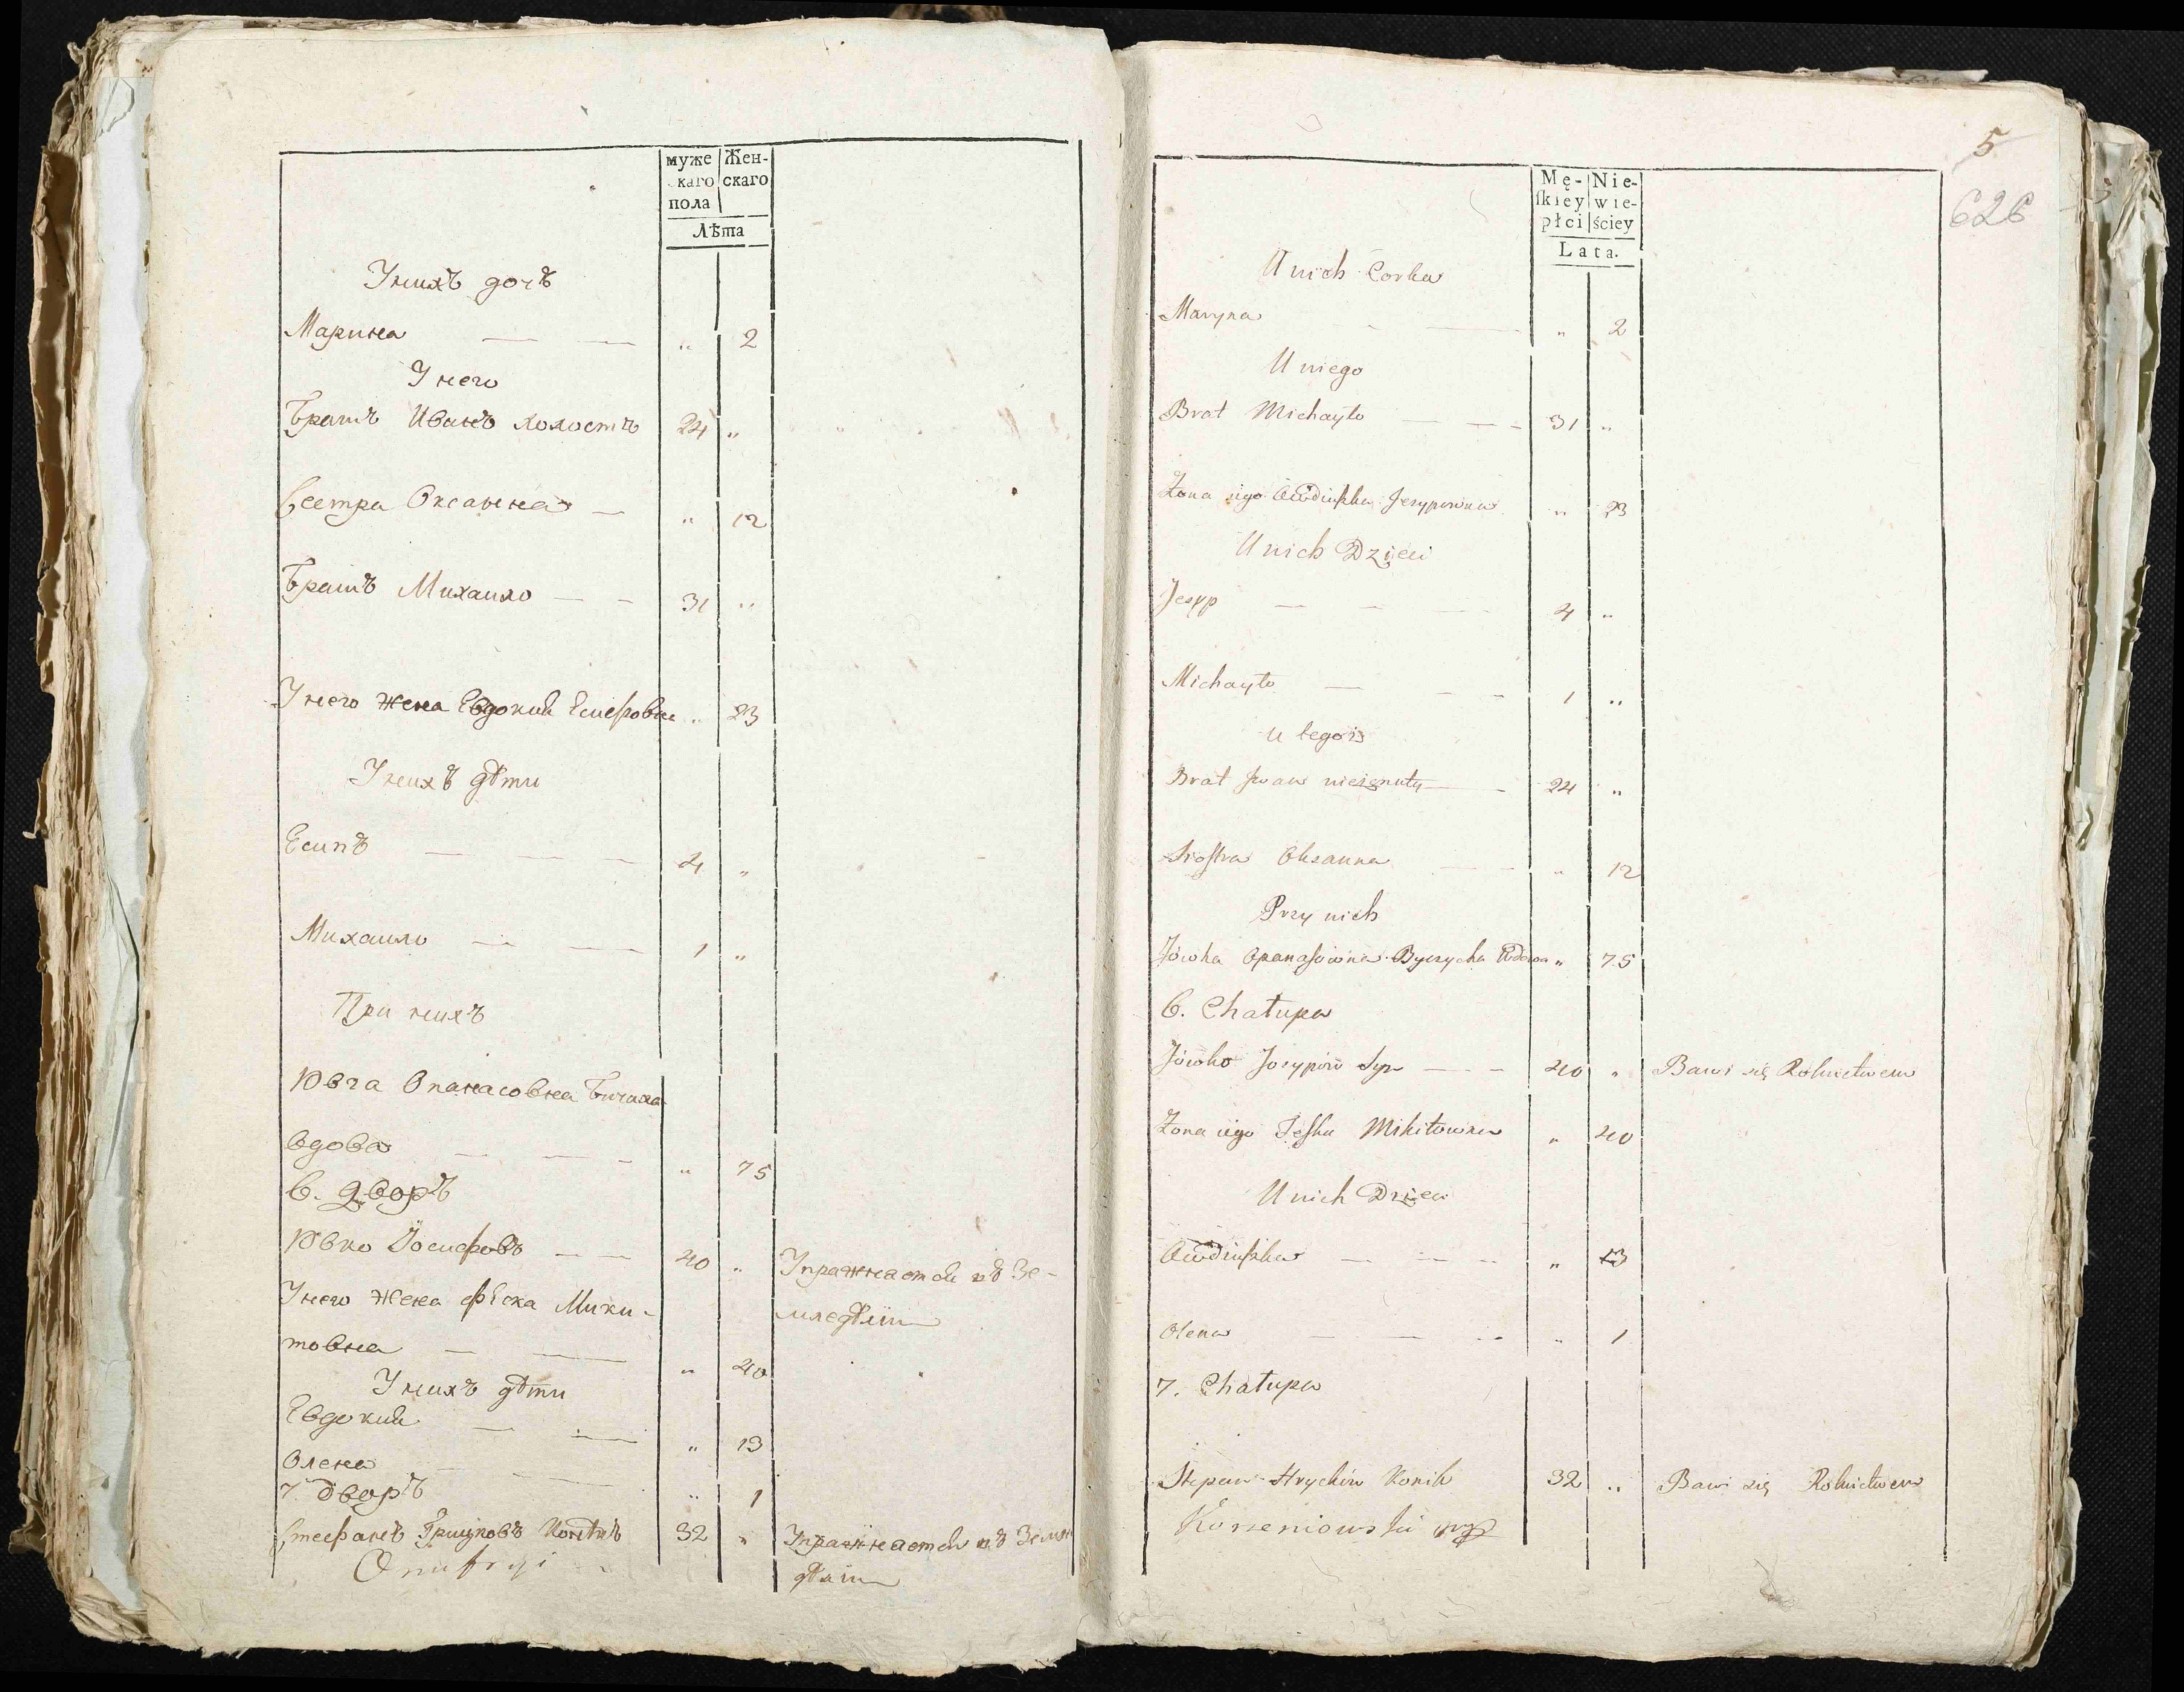 муже Жен-
скаго скаго
пола
Лѣта
У нихъ дочь
Марина — — „ 2
У него
Братъ Иванъ холостъ 24 „
Сестра Оксанна — „ 12
Братъ Михаило — — 31 „
У него жена Евдокия Есифовна „ 23
У нихъ дѣти
Есипъ — — — 4 „
Михаило — — 1 „
При нихъ
Ювга Опанасовна Бичиха
вдова — — — „ 75
6. дворъ
Ювко Іосифовъ — — 40 „ Упражнается въ зе-
У него жена Феска Мики-
мледѣліи
товна — — „ 40
У нихъ дѣти
Евдокия — — „ 13
Олена — — „ 1
7. дворъ
Стефанъ Грицковъ 32 „ Упражнается въ земле
дѣліи
Onufryi
5
626
Mę- Nie-
ſkiey wie-
płci ściey
Lata.
U nich Corka
Maryna — — „ 2
U niego
Brat Michayło — — — 31 „
Żona iego Awdiuszka Jesypowna „ 23
U nich Dzieci
Jesyp — — — 4 „
Michayło — — — 1 „
U tegoż
Brat Iwan nieżonaty — — 24 „
Siostra Oksanna — — „ 12
Przy nich
Jówha Opanasowna Byczycha Wdowa „ 75
6. Chałupa
Jówko Josypów Syn — — 40 „ Bawi się Rolnictwem
Żona iego Feska Mikitowna „ 40
U nich Dzieci
Awdiuszka — — — „ 13
Olena — — — „ 1
7. Chałupa
Stepan Hrycków Konik 32 „ Bawi się Rolnictwem
Korzeniowski